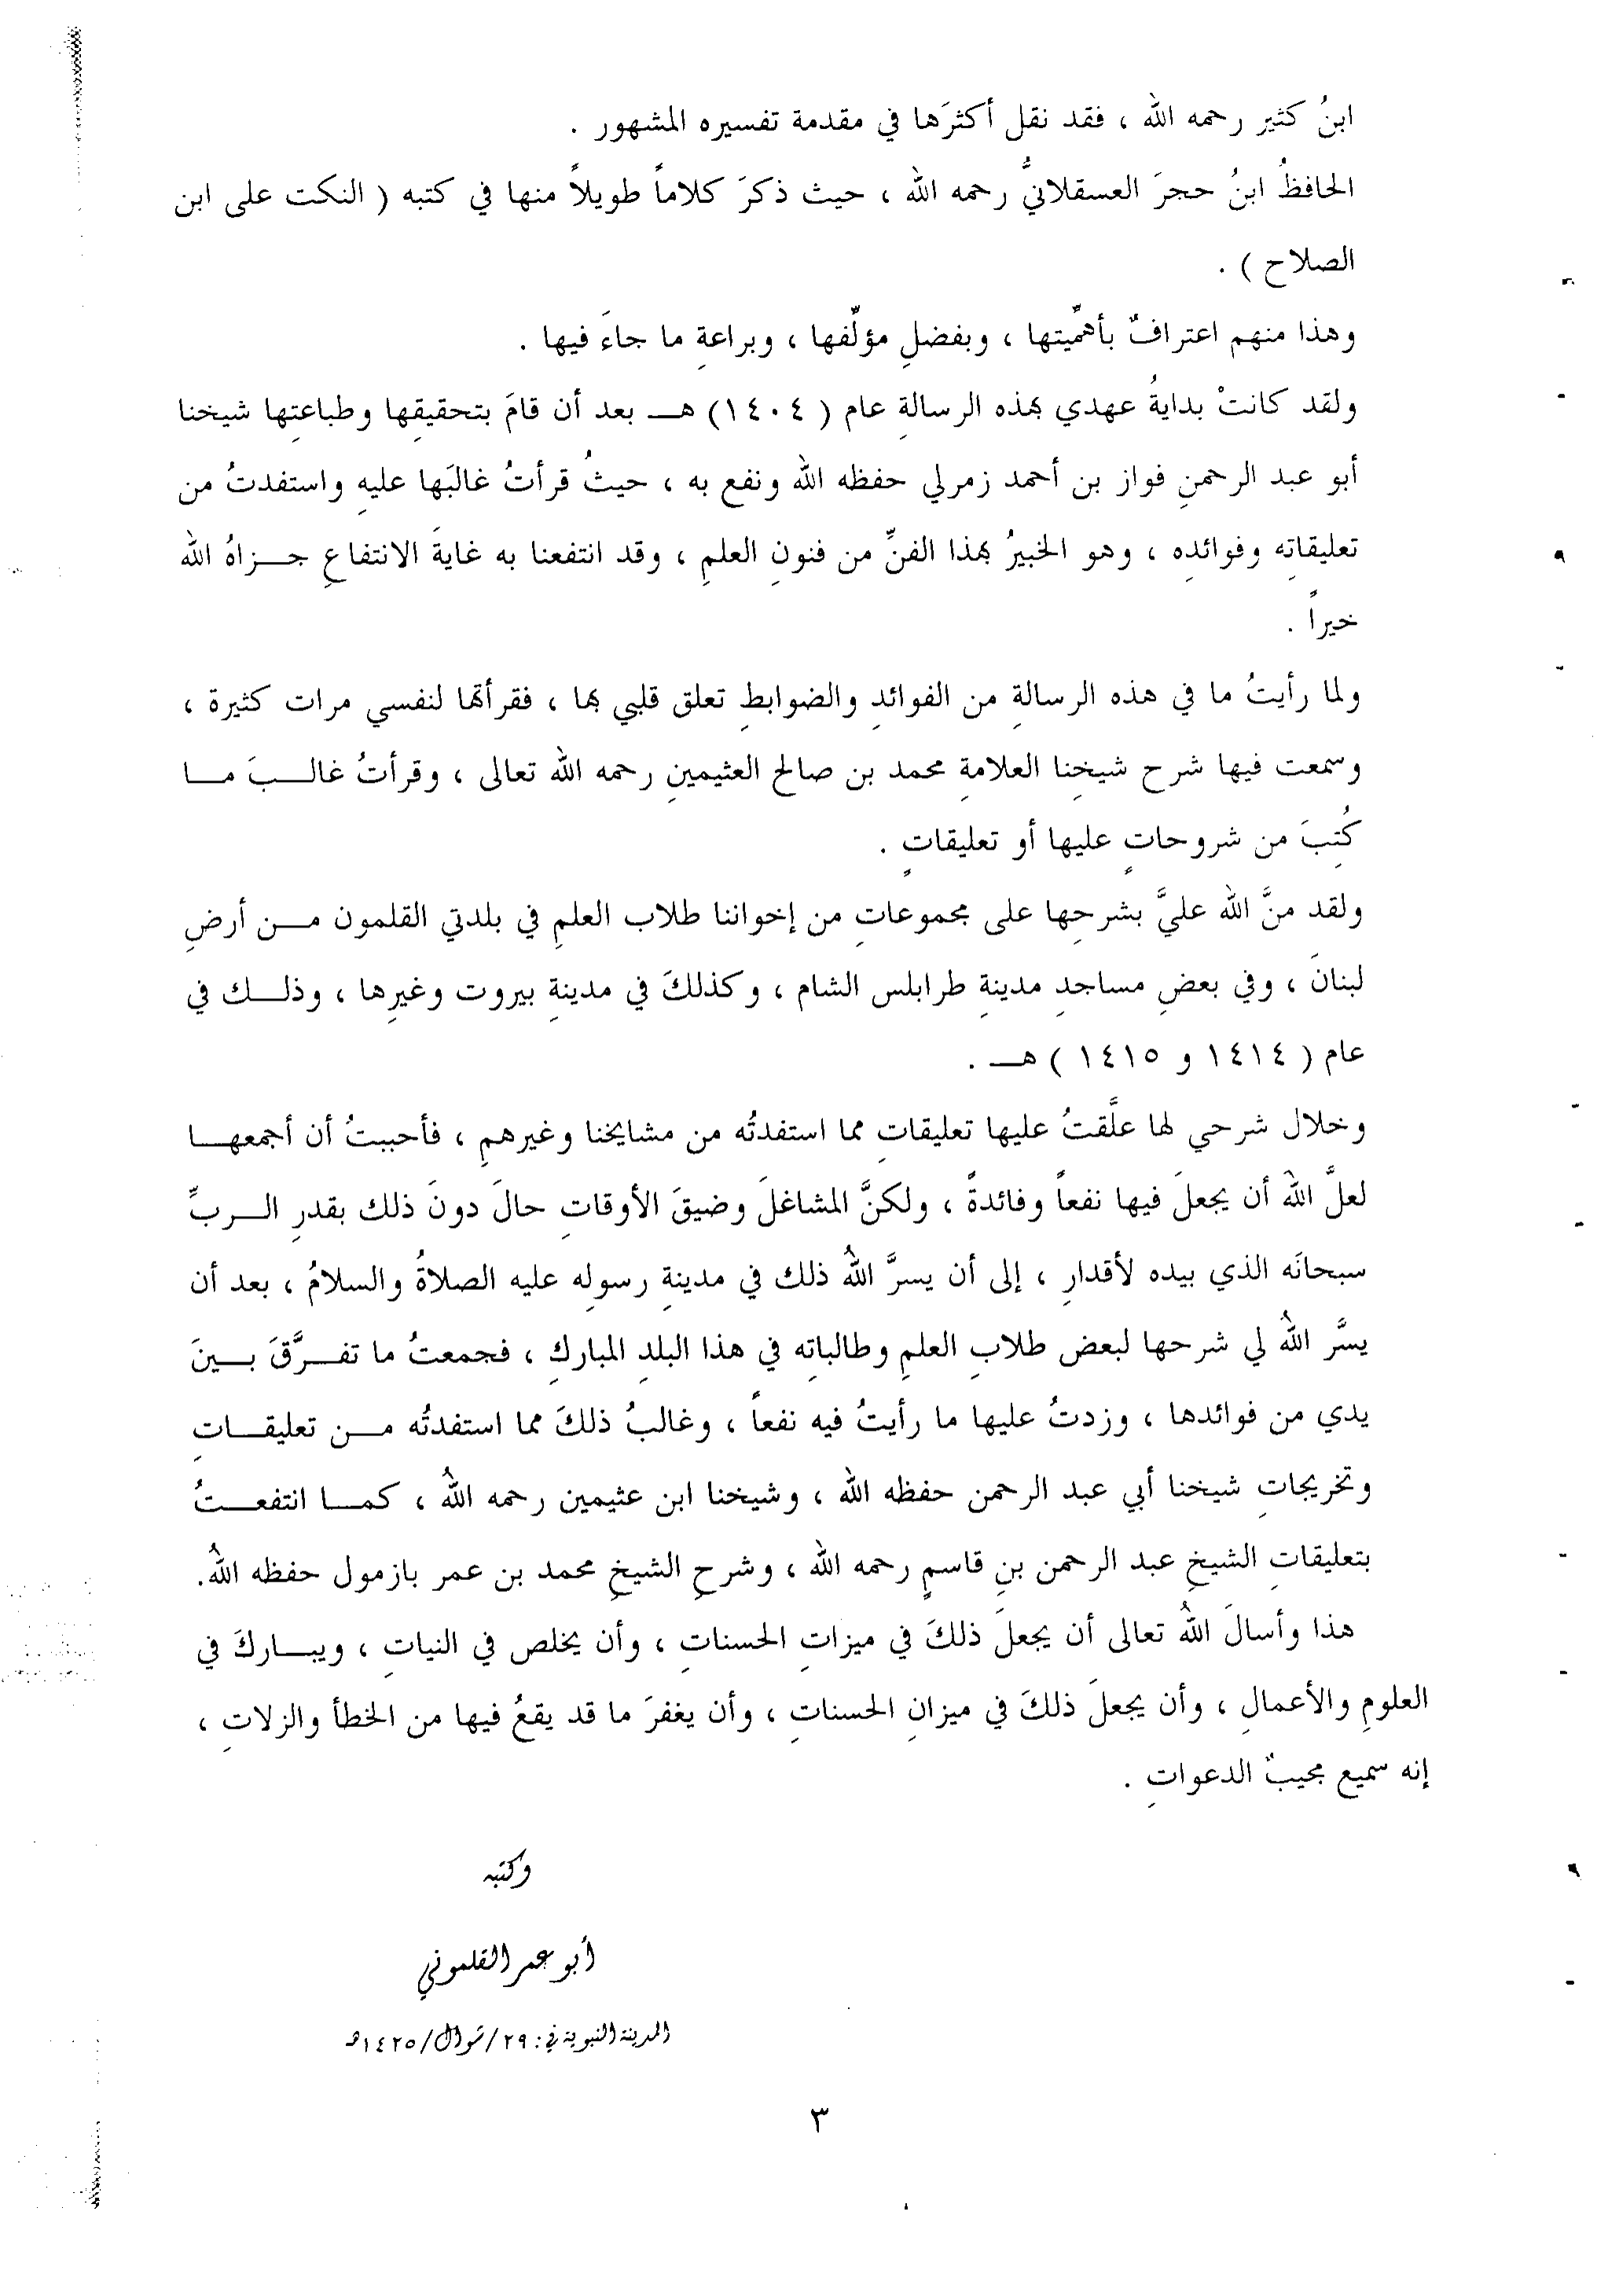 ابنُ كثير رحمه الله ، فقد نقل أكثرَها في مقدمة تفسيره المشهور .
الحافظُ ابنُ حجرَ العسقلانيُّ رحمه الله ، حيث ذكرَ كلاماً طويلاً منها في كتبه ( النكت على ابن
الصلاح ) .
وهذا منهم اعترافٌ بأهمّيتها ، وبفضلِ مؤلّفها ، وبراعةِ ما جاءَ فيها .
ولقد كانتْ بدايةُ عهدي بهذه الرسالةِ عام ( ١٤٠٤) هــ بعد أن قامَ بتحقيقِها وطباعتِها شيخنا
أبو عبد الرحمنِ فواز بن أحمد زمرلي حفظه الله ونفع به ، حيثُ قرأتُ غالبَها عليهِ واستفدتُ من
تعليقاتِه وفوائدِه ، وهو الخبيرُ بهذا الفنِّ من فنونِ العلمِ ، وقد انتفعنا به غايةَ الانتفاعِ جــزاهُ الله
خيراً .
ولما رأيتُ ما في هذه الرسالةِ من الفوائدِ والضوابطِ تعلق قلبي بها ، فقرأتها لنفسي مرات كثيرة ،
وسمعت فيها شرح شيخِنا العلامةِ محمد بن صالح العثيمينِ رحمه الله تعالى ، وقرأتُ غالــبَ مــا
كُتِبَ من شروحاتٍ عليها أو تعليقاتٍ .
ولقد منَّ الله عليَّ بشرحِها على مجموعاتِ من إخواننا طلاب العلمِ في بلدتي القلمون مــن أرضِ
لبنانَ ، وفي بعضِ مساجدِ مدينةِ طرابلس الشام ، وكذلكَ في مدينةِ بيروت وغيرِها ، وذلــك في
عام ( ١٤١٤ و ١٤١٥ ) هــ .
وخلال شرحي لها علَّقتُ عليها تعليقاتِ مما استفدتُه من مشايخنا وغيرهمِ ، فأحببتُ أن أجمعهــا
لعلَّ الله أن يجعلَ فيها نفعاً وفائدةً ، ولكنَّ المشاغلَ وضيقَ الأوقاتِ حالَ دونَ ذلك بقدرِ الــربِّ
سبحانَه الذي بيده لأقدارِ ، إلى أن يسرَّ اللهُ ذلك في مدينةِ رسولِه عليه الصلاةُ والسلامُ ، بعد أن
يسَّر اللهُ لي شرحها لبعض طلابِ العلمِ وطالباتِه في هذا البلدِ المباركِ ، فجمعتُ ما تفــرَّقَ بــينَ
يدي من فوائدها ، وزدتُ عليها ما رأيتُ فيه نفعاً ، وغالبُ ذلكَ مما استفدتُه مــن تعليقــاتِ
وتخريجاتِ شيخنا أبي عبد الرحمن حفظه الله ، وشيخنا ابن عثيمين رحمه اللهُ ، كمــا انتفعــتُ
بتعليقاتِ الشيخِ عبد الرحمن بنِ قاسمٍ رحمه الله ، وشرحِ الشيخِ محمد بن عمر بازمول حفظه اللهُ.
هذا وأسالَ اللهُ تعالى أن يجعلَ ذلكَ في ميزاتِ الحسناتِ ، وأن يخلص في النياتِ ، ويبــاركَ في
العلومِ والأعمالِ ، وأن يجعلَ ذلكَ في ميزانِ الحسناتِ ، وأن يغفرَ ما قد يقعُ فيها من الخطأ والزلاتِ ،
إنه سميع مجيبٌ الدعواتِ .
وكتبه
أبو عمر القلموني
المدينة النبوية في: ٢٩/شوال/١٤٢٥هـ
٣